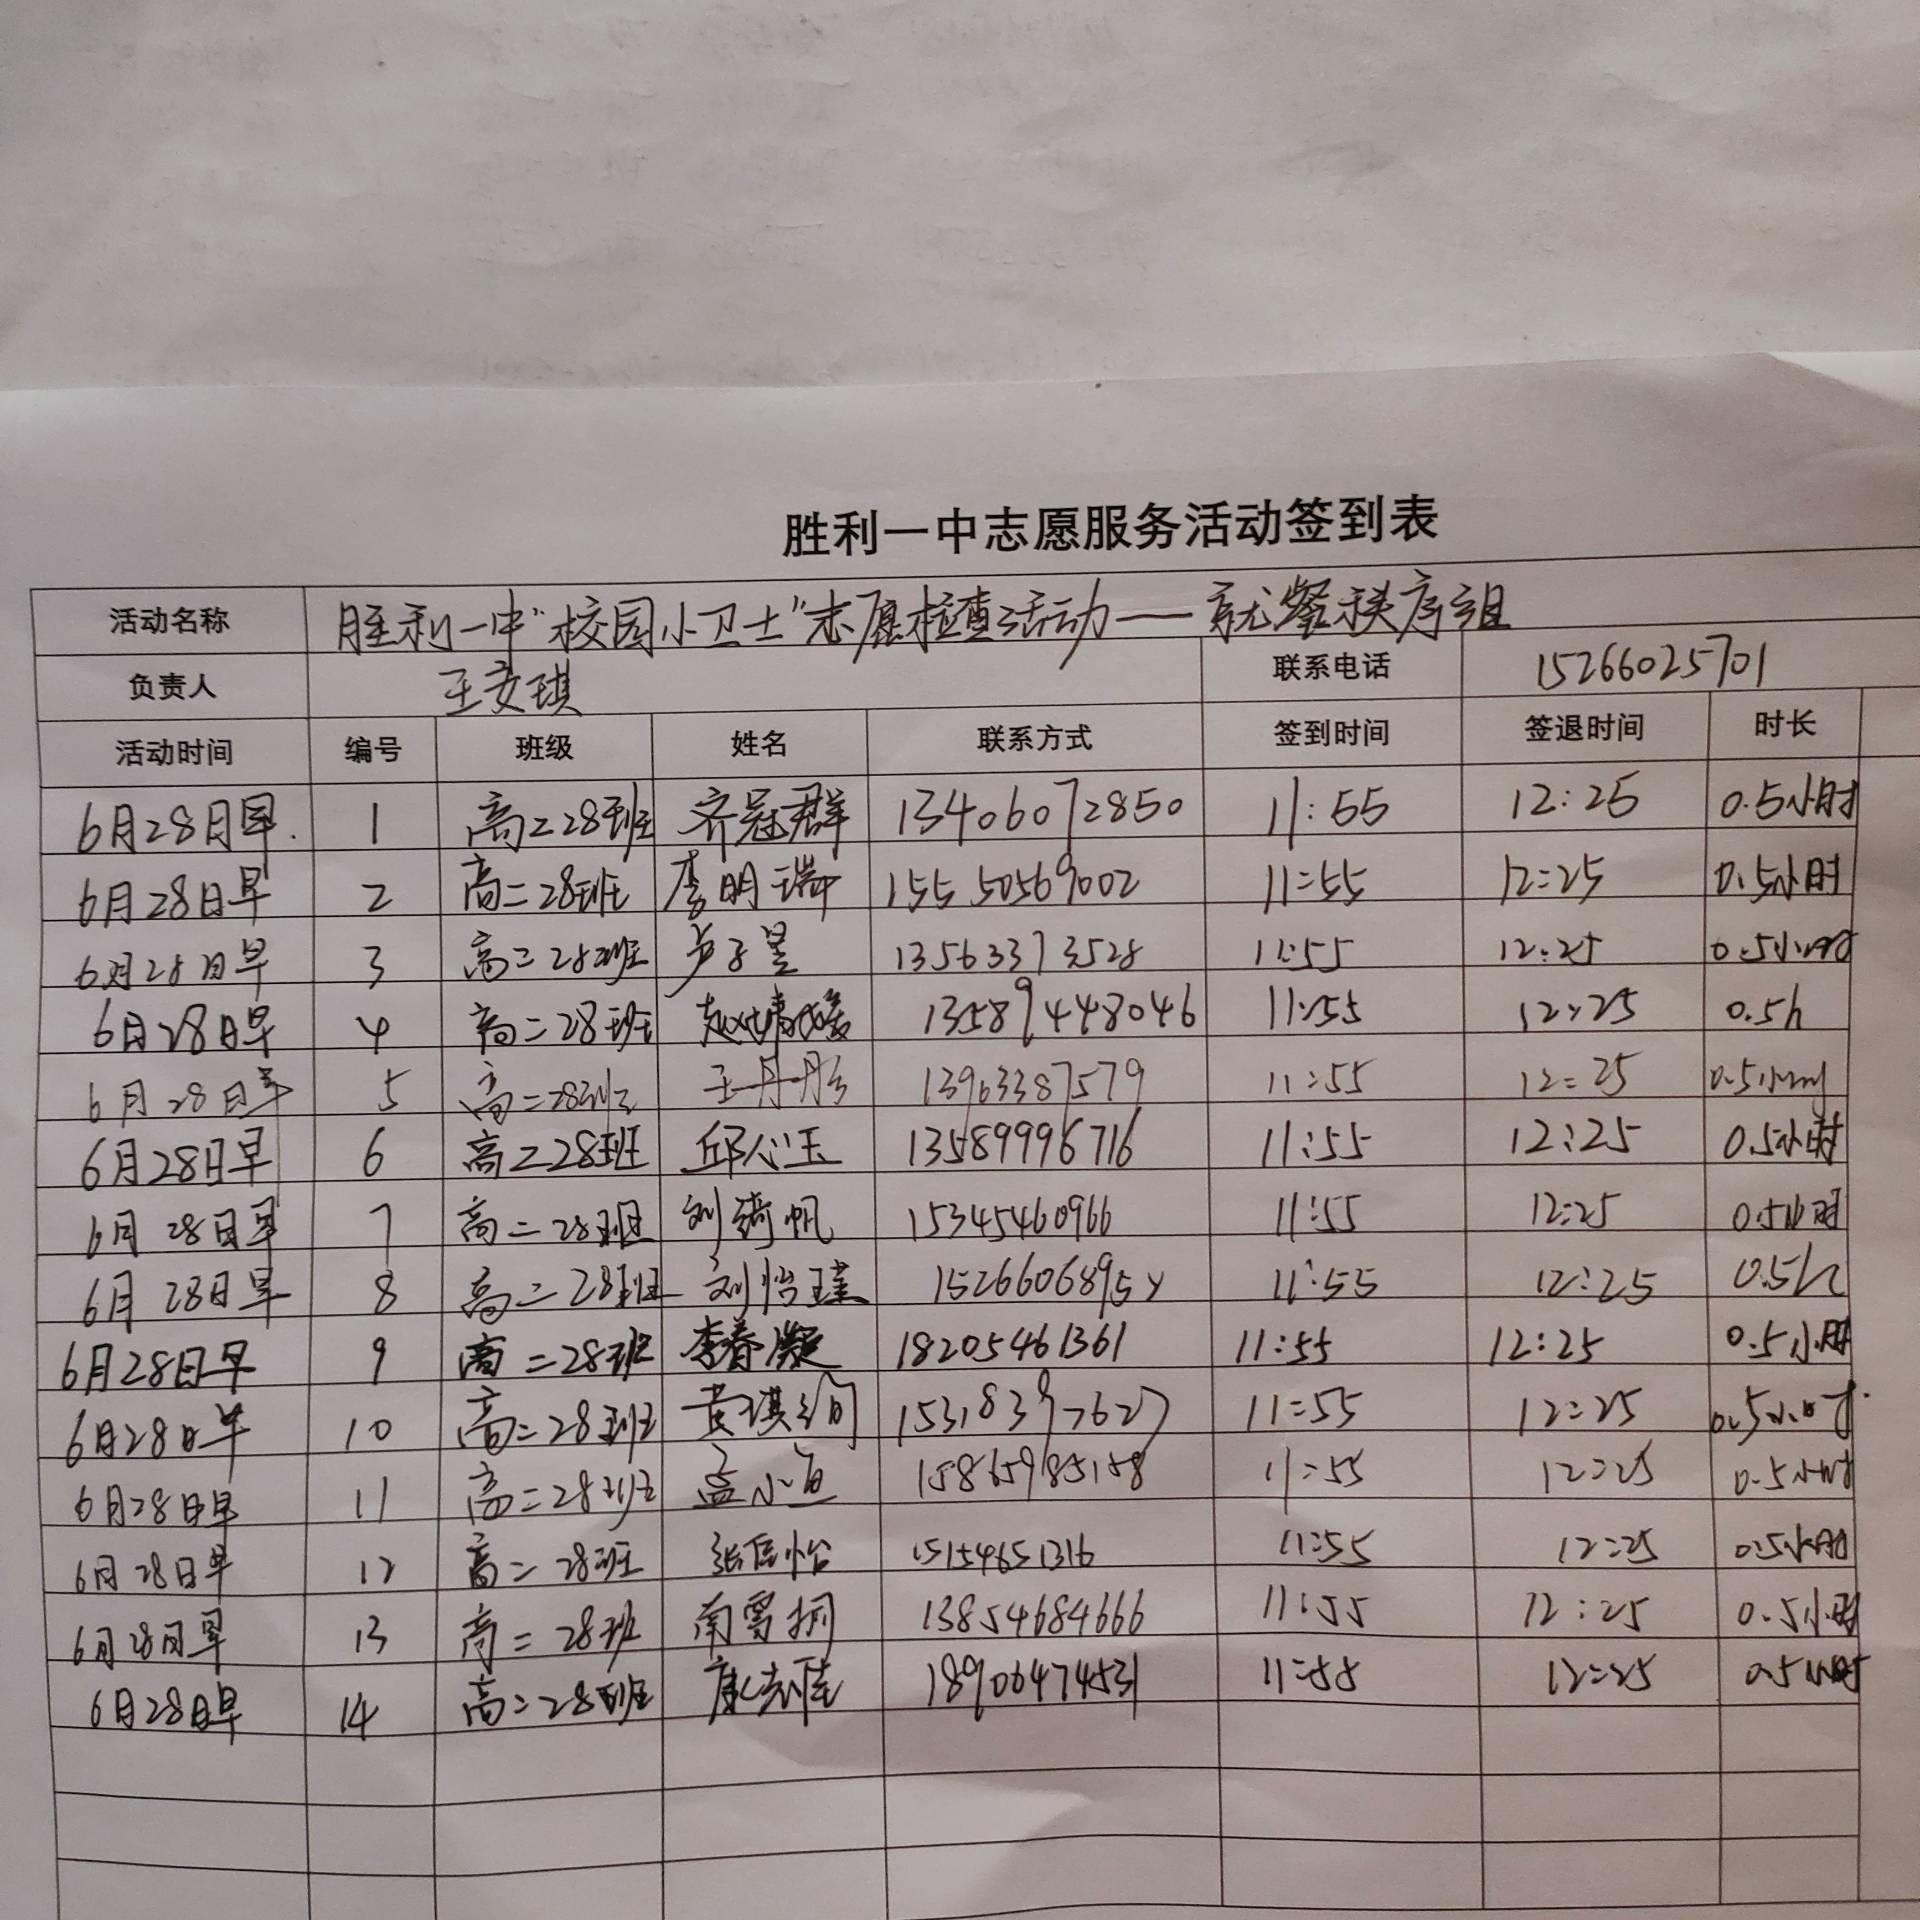 胜利一中志愿服务活动签到表
活动名称 胜利一中“校园小卫士”志愿检查活动——就餐秩序组
负责人 王安琪 联系电话 15266025701
活动时间 编号 班级 姓名 联系方式 签到时间 签退时间 时长
6月28日早 1 高二28班 齐冠群 13406072850 11:55 12:25 0.5小时
6月28日早 2 高二28班 李明瑞 15550569002 11:55 12:25 0.5小时
6月28日早 3 高二28班 卢子昱 13563373528 11:55 12:25 0.5小时
6月28日早 4 高二28班 13589448046 11:55 12:25 0.5h
6月28日早 5 高二28班 王丹彤 13963387579 11:55 12:25 0.5小时
6月28日早 6 高二28班 邱心玉 13589996716 11:55 12:25 0.5小时
6月28日早 7 高二28班 刘绮帆 15345460966 11:55 12:25 0.5小时
6月28日早 8 高二28班 刘怡瑾 11:55 12:25 0.5h
6月28日早 9 高二28班 李春凝 18205461361 11:55 12:25 0.5小时
6月28日早 10 高二28班 黄琪绚 15318397627 11:55 12:25 0.5小时
6月28日早 11 高二28班 孟小鱼 15865985158 11:55 12:25 0.5小时
6月28日早 12 高二28班 15154651316 11:55 12:25 0.5小时
6月28日早 13 高二28班 南雪桐 13854684666 11:55 12:25 0.5小时
6月28日早 14 高二28班 18906474531 11:55 12:25 0.5小时